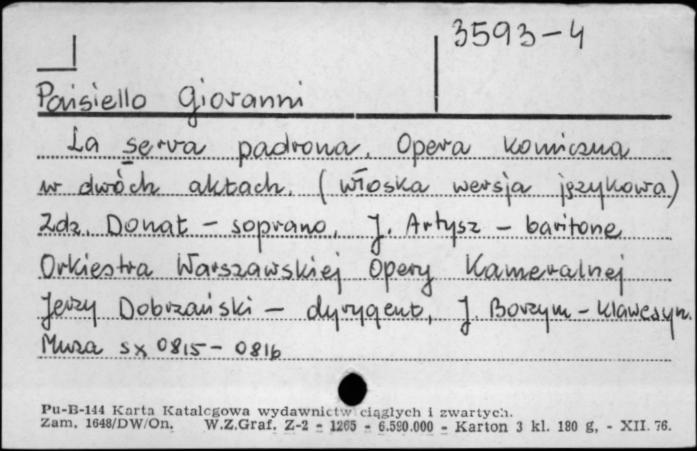 3593-4
Paisiello Giovanni
La serva padrona. Opera komiczna
w dwóch aktach. (włoska wersja językowa)
Zdz. Donat - soprano, J. Artysz - baritone
Orkiestra Warszawskiej Opery Kameralnej
Jerzy Dobrzański - dyrygent, J. Borzym - klawesyn.
Muza SX 0815 - 0816
Pu-B-144 Karta Katalogowa wydawnictw ciągłych i zwartych.
Zam. 1648/DW/On. W.Z.Graf. Z-2 - 1265 - 6.590.000 - Karton 3 kl. 180 g. - XII. 76.